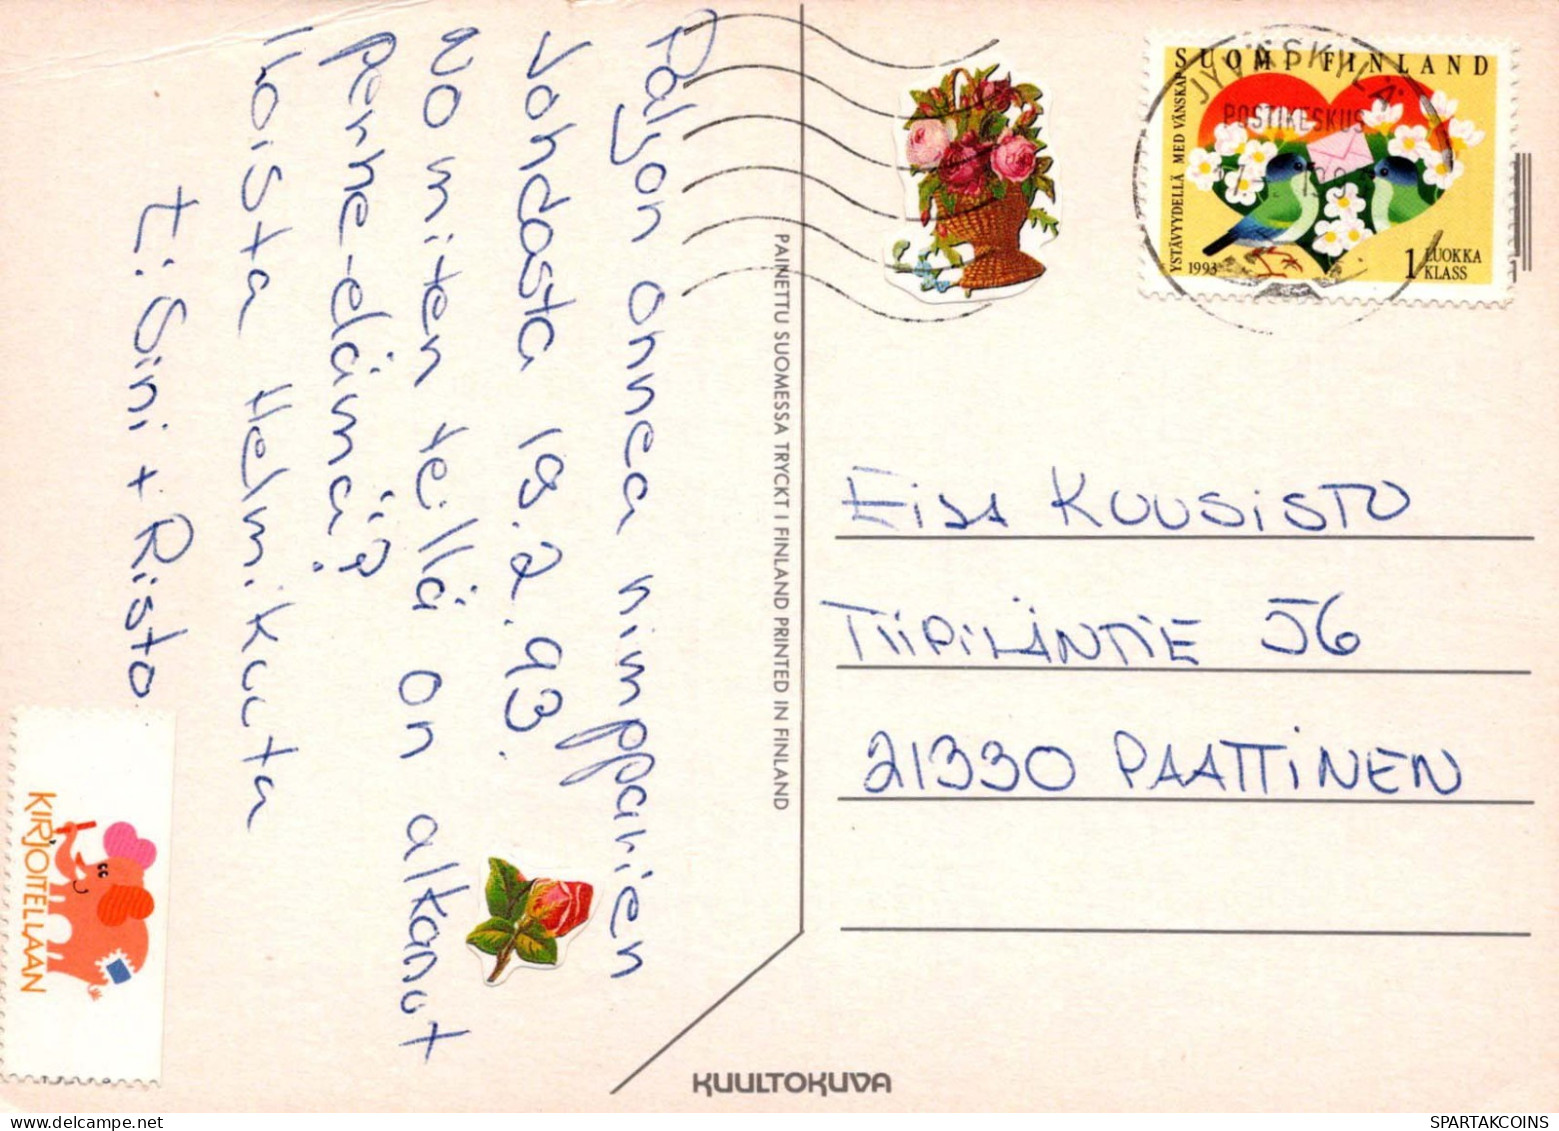 Paljon onnea nimpparien
Johdosta 18.2.93.
No miten teillä on alkanut
perhe-elämä?
Iloista Helmikuuta
t: Sini + Risto
KIRJOITELLAAN
PAINETTU SUOMESSA TRYCKT I FINLAND PRINTED IN FINLAND
KUULTOKUVA
SUOMI FINLAND
YSTÄVYYDELLÄ MED VÄNSKAP
1993
1 LUOKKA
KLASS
JYVÄSKYLÄ
POSTIKESKUS
EiJA KUUSiSTO
TiiPiLÄNTiE 56
21330 PAATTiNEN
SPARTAKCOINS